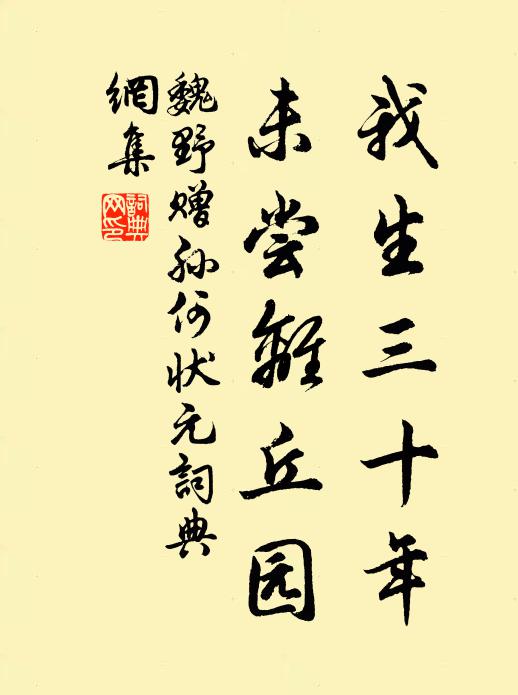 我生三十年
未尝離丘园
魏野赠孙何状元詞典
網集
詞典
网印